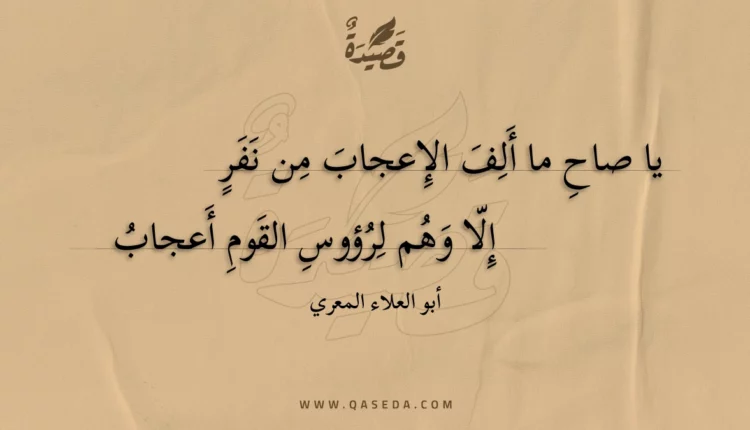 قَصِيدَةٌ
يا صاحِ ما أَلِفَ الإِعجابَ مِن نَفَرٍ
إِلّا وَهُم لِرُؤوسِ القَومِ أَعجابُ
أبو العلاء المعري
WWW.QASEDA.COM